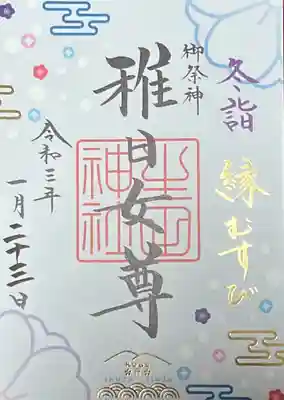 冬詣
縁むすび
御祭神
稚日女尊
生田神社
令和三年
一月二十三日